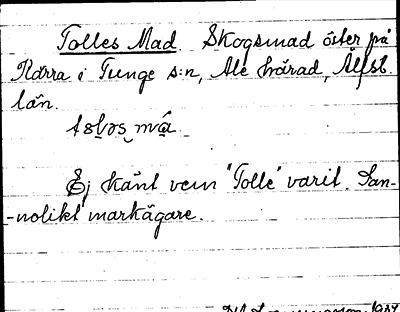 Tolles Mad. Skogsmad öster på
Rårra i Tunge s:n, Ale härad, Älfsb.
län.
Ej känt vem "Tolle" varit. San-
-nolikt markägare.